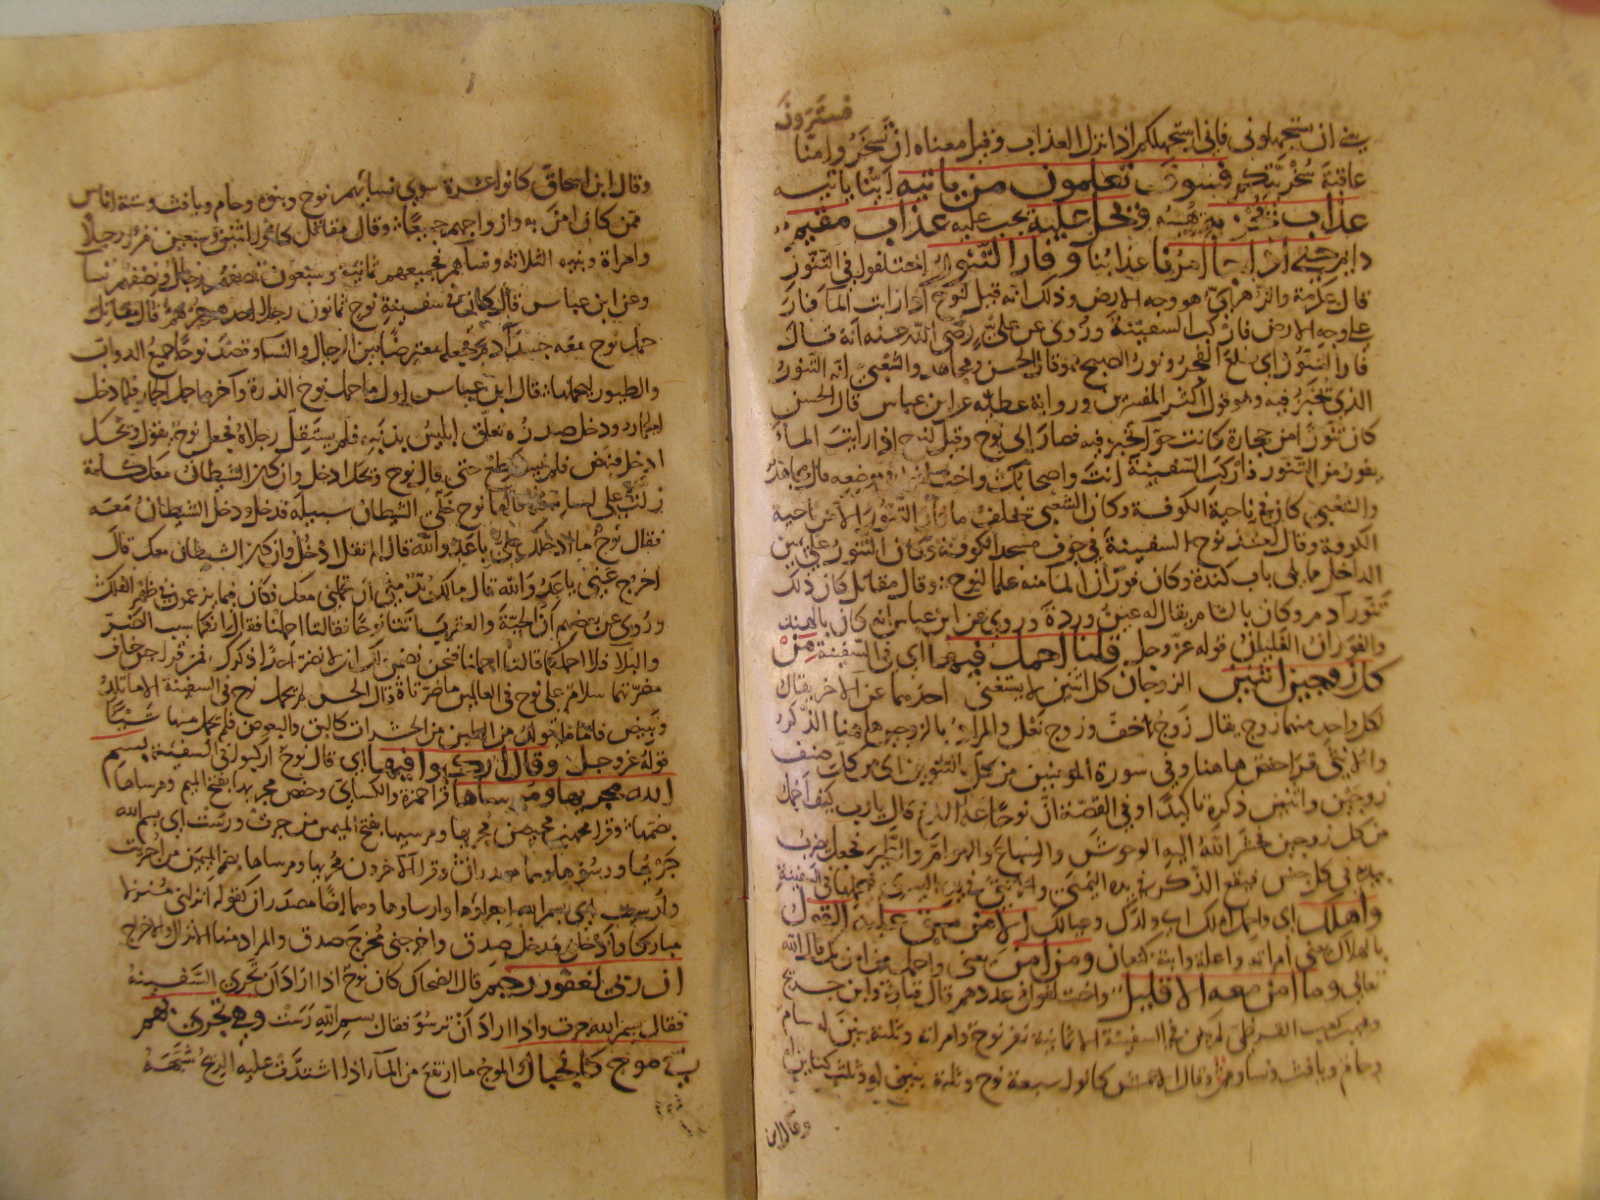 فسترون
يعني ان تستجهلوني فاني استجهلكم اذا نزل العذاب وقيل معناه ان تسخروا منا
عاقبة سخريتكم فسوف تعلمون من ياتيه اينا ياتيه
عذاب يخزيه يهينه ويحل عليه يجب عليه عذاب مقيم
دايم حتى اذا جا امرنا عذابنا وفار التنور اختلفوا في التنور
قال عكرمة والزهري هو وجه الارض وذلك انه قيل لنوح اذا رايت الما فار
على وجه الارض فاركب السفينة وروي عن علي رضي الله عنه انه قال
فار التنور اي طلع الفجر ونور الصبح وقال الحسن ومجاهد والشعبي انه التنور
الذي يخبز فيه وهو قول اكثر المفسرين ورواية عطية عن ابن عباس قال الحسن
كان تنورا من حجارة كانت حوا تخبز فيه فصار الى نوح وقيل لنوح اذا رايت الماء
يفور من التنور فاركب السفينة انت واصحابك واختلفوا في موضعه قال مجاهد
والشعبي كان في ناحية الكوفة وكان الشعبي يحلف ما فار التنور الا من ناحية
الكوفة وقال اتخذ نوح السفينة في جوف مسجد الكوفة وكان التنور على يمين
الداخل مما يلي باب كندة وكان فوران الما منه علما لنوح وقال مقاتل كان ذلك
تنور آدم وكان بالشام بمكان يقال له عين وردة وروي عن ابن عباس انه كان بالهند
والفوران الغليان قوله عز وجل قلنا احمل فيها اي في السفينة من
كل زوجين اثنين الزوجان كل اثنين لا يستغني احدهما عن الاخر يقال
لكل واحد منهما زوج يقال زوج خف وزوج نعل والمراد بالزوجين هاهنا الذكر
والانثى قرا حفص هاهنا وفي سورة المومنين من كل بالتنوين اي من كل صنف
زوجين واثنين ذكره تاكيدا وفي القصة ان نوحا عليه السلام قال يارب كيف احمل
من كل زوجين فحشر الله اليه الوحوش والسباع والهوام والطير فجعل يضرب
بيده في كل جنس فيقع الذكر في يده اليمنى والانثى في يده اليسرى فيحملها في السفينة
واهلك اي واحمل اهلك اي ولدك وعيالك الا من سبق عليه القول
بالهلاك يعني امراته واعلة وابنه كنعان ومن امن يعني واحمل من امن بك قال الله
تعالى وما امن معه الا قليل واختلفوا في عددهم قال قتادة وابن جريج
ومحمد بن كعب القرظي لم يكن في السفينة الا ثمانية نفر نوح وامراته وثلثة بنين له سام
وحام ويافث ونساوهم وقال الاعمش كانوا سبعة نوح وثلثة بنين له وثلث كناين له
وقال ابن
وقال ابن اسحاق كانوا عشرة سوى نسائهم نوح وبنوه وحام ويافث وستة اناس
ممن كان امن به وازواجهم جميعا وقال مقاتل كانوا اثنين وسبعين نفرا رجلا
وامراة وبنيه الثلاثة ونساهم فجميعهم ثمانية وسبعون نصفهم رجال ونصفهم نسا
وعن ابن عباس قال كان في سفينة نوح ثمانون رجلا احدهم جرهم قال مقاتل
حمل نوح معه جسد آدم فجعله معترضا بين الرجال والنسا وقصد نوحا جميع الدواب
والطيور ليحملها قال ابن عباس اول ما حمل نوح الذرة وآخر ما حمل الحمار فلما دخل
الحمار ودخل صدره تعلق ابليس بذنبه فلم يستقل رجلاه فجعل نوح يقول ويحك
ادخل فينهض فلم يستطع حتى قال نوح ويحك ادخل وان كان الشيطان معك كلمة
زلت على لسانه فلما قالها نوح خلى الشيطان سبيله فدخل ودخل الشيطان معه
فقال نوح ما ادخلك علي ياعدو الله قال الم تقل ادخل وان كان الشيطان معك قال
اخرج عني ياعدو الله قال مالك بد من ان تحملني معك فكان فيما يزعمون في ظهر الفلك
وروي عن بعضهم ان الحية والعقرب اتتا نوحا فقالتا احملنا فقال انكما سبب الضر
والبلا فلا احملكما قالتا احملنا فنحن نضمن لك ان لا نضر احدا ذكرك فمن قرا حين خاف
مضرتهما سلام على نوح في العالمين ما ضرتاه وقال الحسن لم يحمل نوح في السفينة الا ما يلد
ويبيض فاما ما يتولد من الطين من الحشرات كالبق والبعوض فلم يحمل منها شيئا
قوله عز وجل وقال اركبوا فيها اي قال نوح اركبوا في السفينة بسم
الله مجريها ومرساها قرا حمزة والكساي وحفص مجريها بفتح الميم ومرساها
بضمها وقرا محمد بن محيصن مجريها ومرسيها بفتح الميمين من جرت ورست اي بسم الله
جريها ورسوها وهما مصدران وقرا الآخرون مجريها ومرساها بضم الميمين من اجريت
وارسيت اي بسم الله اجراوها وارساوها وهما ايضا مصدران كقوله انزلني منزلا
مباركا وادخلني مدخل صدق واخرجني مخرج صدق والمراد منها الانزال والاخراج
ان ربي لغفور رحيم قال الضحاك كان نوح اذا اراد ان تجري السفينة
فقال بسم الله جرت واذا اراد ان ترسو فقال بسم الله رست وهي تجري بهم
في موج كالجبال والموج ما ارتفع من الماء اذا اشتدت عليه الريح شبهه